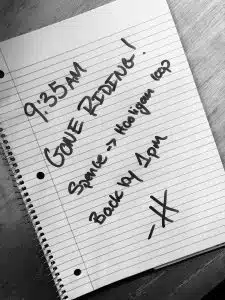 9:35AM
GONE RIDING!
Spanse -> Hooligan loop
Back by 1pm
-H